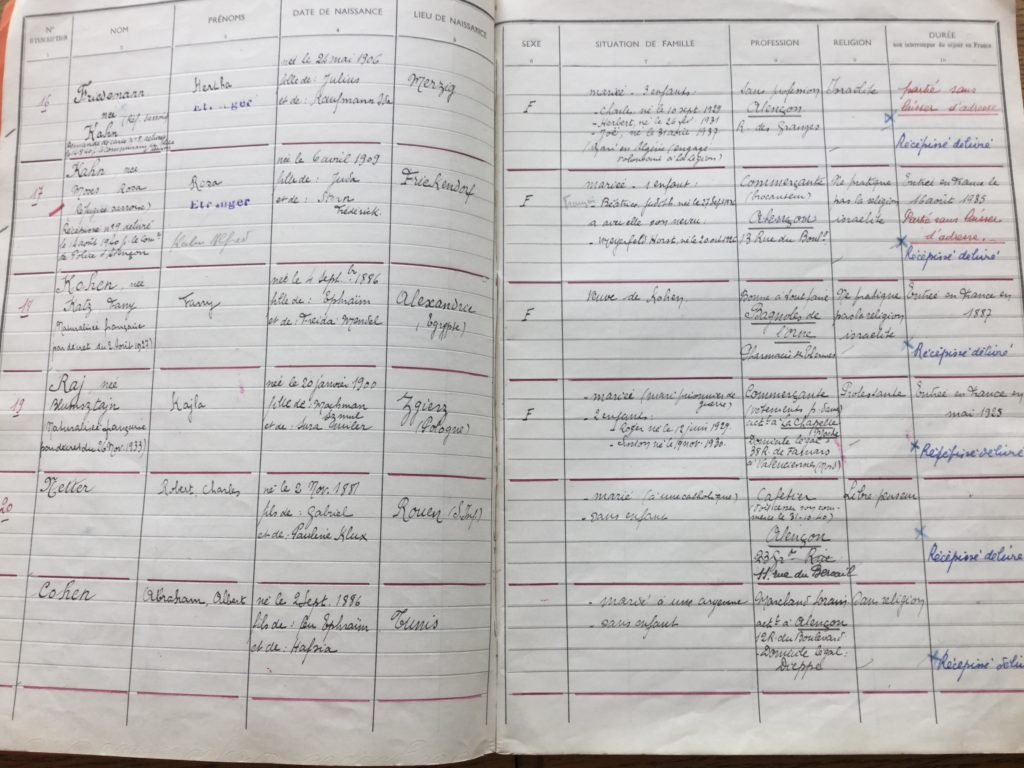 N° D'INSCRIPTION NOM PRÉNOMS DATE DE NAISSANCE LIEU DE NAISSANCE SEXE SITUATION DE FAMILLE PROFESSION RELIGION DURÉE
non interrompue du séjour en France
1 2 3 4 5 6 7 8 9 10
16
Friedemann
née
Kahn
Hertha
Etranger
née le 24 mai 1906
fille de: Julius
et de: Kaufmann
Merzig
F
mariée - 3 enfants:
- Charles né le 10 sept. 1929
- Herbert, né le 26 1931
né le 31 1937
(Mari en Algérie (engagé
volontaire à la Légion)
Sans profession
Alençon
R. des Granges
Israélite
partie sans
laisser d'adresse
Récépissé délivré
17
Kahn née
Moses Rosa
Récépissé n°9 délivré
le 1 août 1940 p. le Com.
de Police d'Alençon
Roza
Etranger
née le 6 avril 1909
fille de: Juda
et de: Nora
Frederick
Frickendorf
F
mariée - 1 enfant:
Béatrice, Judith née le 27 Sept
a avec elle son neveu:
Horst, né le 20 oct
Commerçante
(brocanteur)
Alençon
13 Rue du Boul.
Ne pratique
pas la religion
israélite
Entrée en France le
16 août 1935
Partie sans laisser
d'adresse.
Récépissé délivré
18
Kohen, née
Katz Fany
Naturalisée française
par décret du 2 Août 1927)
Fanny
née le 4 septbre 1886
fille de: Ephraïm
et de: Freida
Alexandrie
(Egypte)
F
Veuve de Kohen
Bonne à tout faire
Bagnoles de
l'Orne
Pharmacie des Thermes
Ne pratique
pas la religion
israélite
Entrée en France en
1887
Récépissé délivré
19
Raj née
Blumsztajn
Naturalisée française
par décret du 26 Nov. 1933)
Kajla
née le 20 janvier 1900
fille de: Nachman
Samul
et de: Sura
Zgierz
(Pologne)
F
- mariée (mari prisonnier de
guerre)
- 2 enfants:
- Roger né le 12 juin 1929
- né le 9 nov. 1930.
Commerçante
actt à La Chapelle
Domicile légal:
38 R de Famars
à Valenciennes (Nord)
Protestante
Entrée en France en
mai 1925
Récépissé délivré
20
Netter
Robert, Charles
né le 2 Nov. 1881
fils de: Gabriel
et de: Pauline Klux
Rouen (S. Inf)
- marié (à une catholique)
- Sans enfant
Cafetier
Alençon
23 Gr. Rue
11 rue du Bercail
Libre penseur
Récépissé délivré
Cohen
Abraham, Albert
né le 2 Sept. 1886
fils de: Ben Ephraïm
et de: Hafsia
Tunis
- marié à une aryenne
- Sans enfant
Marchand forain
actt à Alençon
12 R du Boulevard
- Domicile légal:
Dieppe
Sans religion
Récépissé